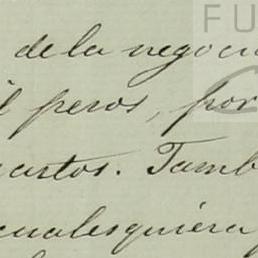 de la negoci
il pesos, por
cuartos. Tamb
cualesquiera